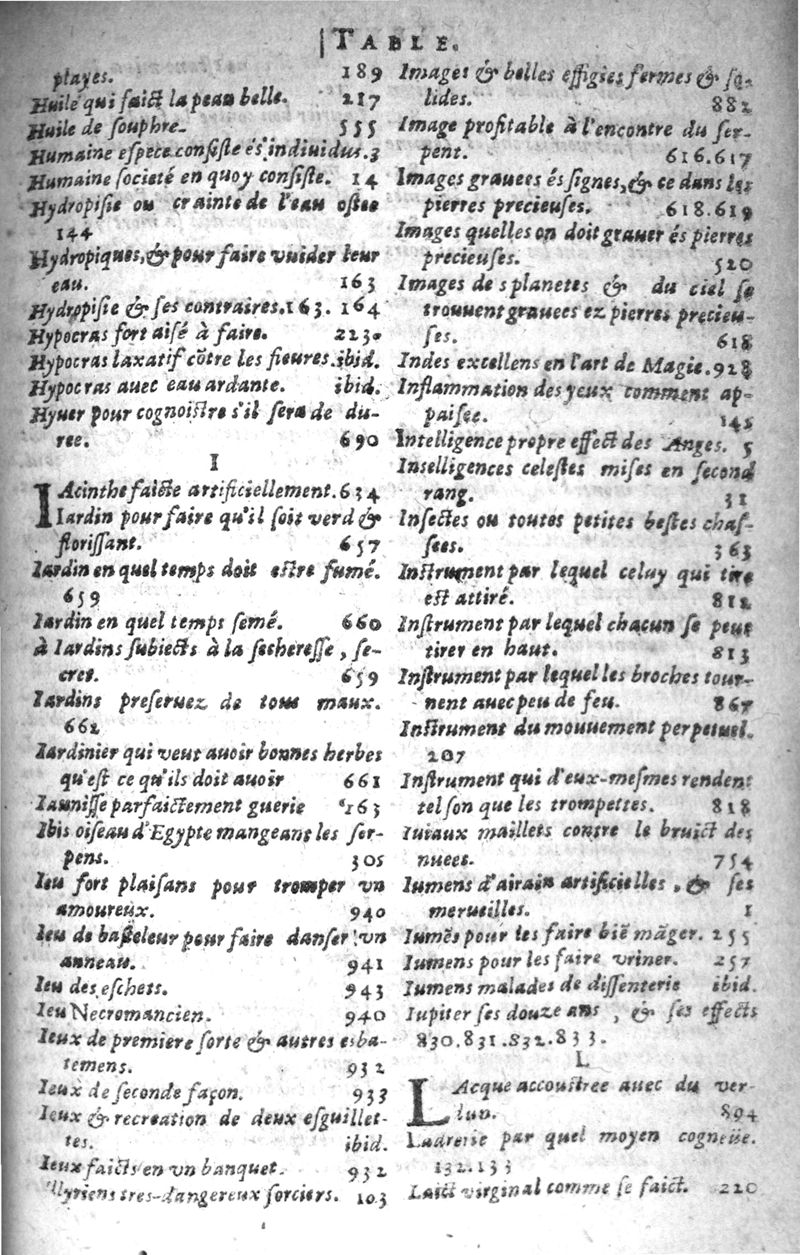 TABLE.
playes. 189
Huile qui faict la peau belle. 217
Huile de souphre. 555
Humaine espece consiste és indiuidus. 3
Humaine societé en quoy consiste. 14
Hydropisie ou crainte de l'eau ostee
144
Hydropiques, & pour faire vuider leur
eau. 163
Hydropisie & ses contraires. 163. 164
Hypocras fort aisé à faire. 223.
Hypocras laxatif cõtre les fieures. ibid.
Hypocras auec eau ardante. ibid.
Hyuer pour cognoistre s'il sera de du-
ree. 690
I
IAcinthe faicte artificiellement. 634
Iardin pour faire qu'il soit verd &
florissant. 657
Iardin en quel temps doit estre fumé.
659
Iardin en quel temps semé. 660
à Iardins subiects à la secheresse, se-
cret. 659
Iardins preseruez de tous maux.
662
Iardinier qui veut auoir bonnes herbes
qu'est ce qu'ils doit auoir 661
Iaunisse parfaictement guerie 163
Ibis oiseau d'Egypte mangeant les ser-
pens. 305
Ieu fort plaisans pour tromper vn
amoureux. 940
Ieu de basteleur pour faire danser vn
anneau. 941
Ieu des eschets. 943
Ieu Necromancien. 940
Ieux de premiere sorte & autres esba-
temens. 932
Ieux de seconde façon. 933
Ieux & recreation de deux esguillet-
tes. ibid.
Ieux faicts en vn banquet. 932
Illyriens tres-dangereux sorciers. 103
Images & belles effigies fermes & so-
lides. 882
Image profitable à l'encontre du ser-
pent. 616.617
Images grauees és signes, & ce dans les
pierres precieuses. 618.619
Images quelles on doit grauer és pierres
precieuses. 520
Images des planetes & du ciel se
trouuent grauees ez pierres precieu-
ses. 618
Indes excellens en l'art de Magie. 928
Inflammation des yeux comment ap-
paisée. 142
Intelligence propre effect des Anges. 5
Intelligences celestes mises en second
rang. 31
Insectes ou toutes petites bestes chas-
sees. 363
Instrument par lequel celuy qui tire
est attiré. 812
Instrument par lequel chacun se peut
tirer en haut. 813
Instrument par lequel les broches tour-
nent auec peu de feu. 867
Instrument du mouuement perpetuel.
207
Instrument qui d'eux-mesmes rendent
tel son que les trompettes. 818
Iuiaux maillets contre le bruict des
nuees. 754
Iumens d'airain artificielles, & ses
merueilles. 1
Iumẽs pour les faire biẽ mãger. 255
Iumens pour les faire vriner. 257
Iumens malades de dissenterie ibid.
Iupiter ses douze ans, & ses effects
830.831.832.833.
L
LAcque accoustree auec du ver-
lun. 894
Ladrerie par quel moyen cogneüe.
132.133
Laict virginal comme se faict. 220